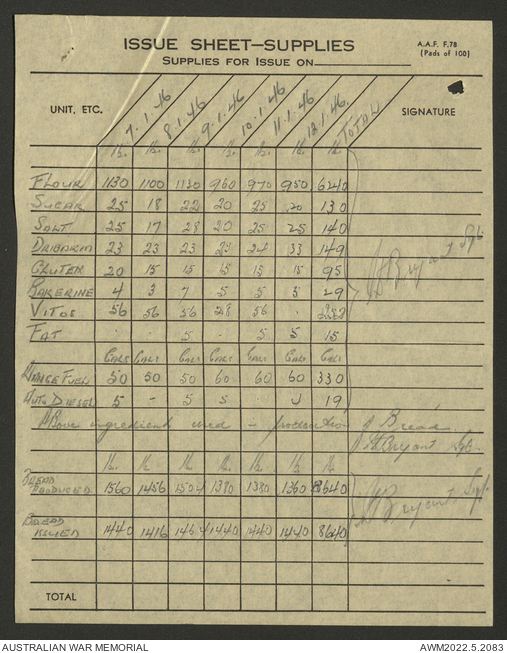 ISSUE SHEET—SUPPLIES
A.A.F. F.78
(Pads of 100)
SUPPLIES FOR ISSUE ON
UNIT, ETC. 7.1.46 8.1.46 9.1.46 10.1.46 11.1.46 12.1.46. TOTAL SIGNATURE
lb. lb. lb. lb. lb. lb. lb.
FLOUR 1130 1100 1130 960 970 950 6240
SUGAR 25 18 22 20 25 20 130
SALT 25 17 28 20 25 25 140
DRIBARM 23 23 23 23 24 33 149
GLUTEN 20 15 15 15 15 15 95
BAKERINE 4 3 7 5 5 5 29
VITOS 56 56 56 28 56 . 252
FAT . . 5 5 5 15
J Bryant Sgt
GALS GALS GALS GALS GALS GALS GALS
RANGE FUEL 50 50 50 60 60 60 330
AUTO DIESEL 5 - 5 5 . 4 19
Above ingredients used in production of Bread
Bryant Sgt.
lb. lb. lb. lb. lb. lb. lb.
BREAD PRODUCED 1560 1456 1504 1380 1380 1360 8640
BREAD ISSUED 1440 1416 1464 1440 1440 1440 8640
Bryant Sgt.
TOTAL
AUSTRALIAN WAR MEMORIAL
AWM2022.5.2083